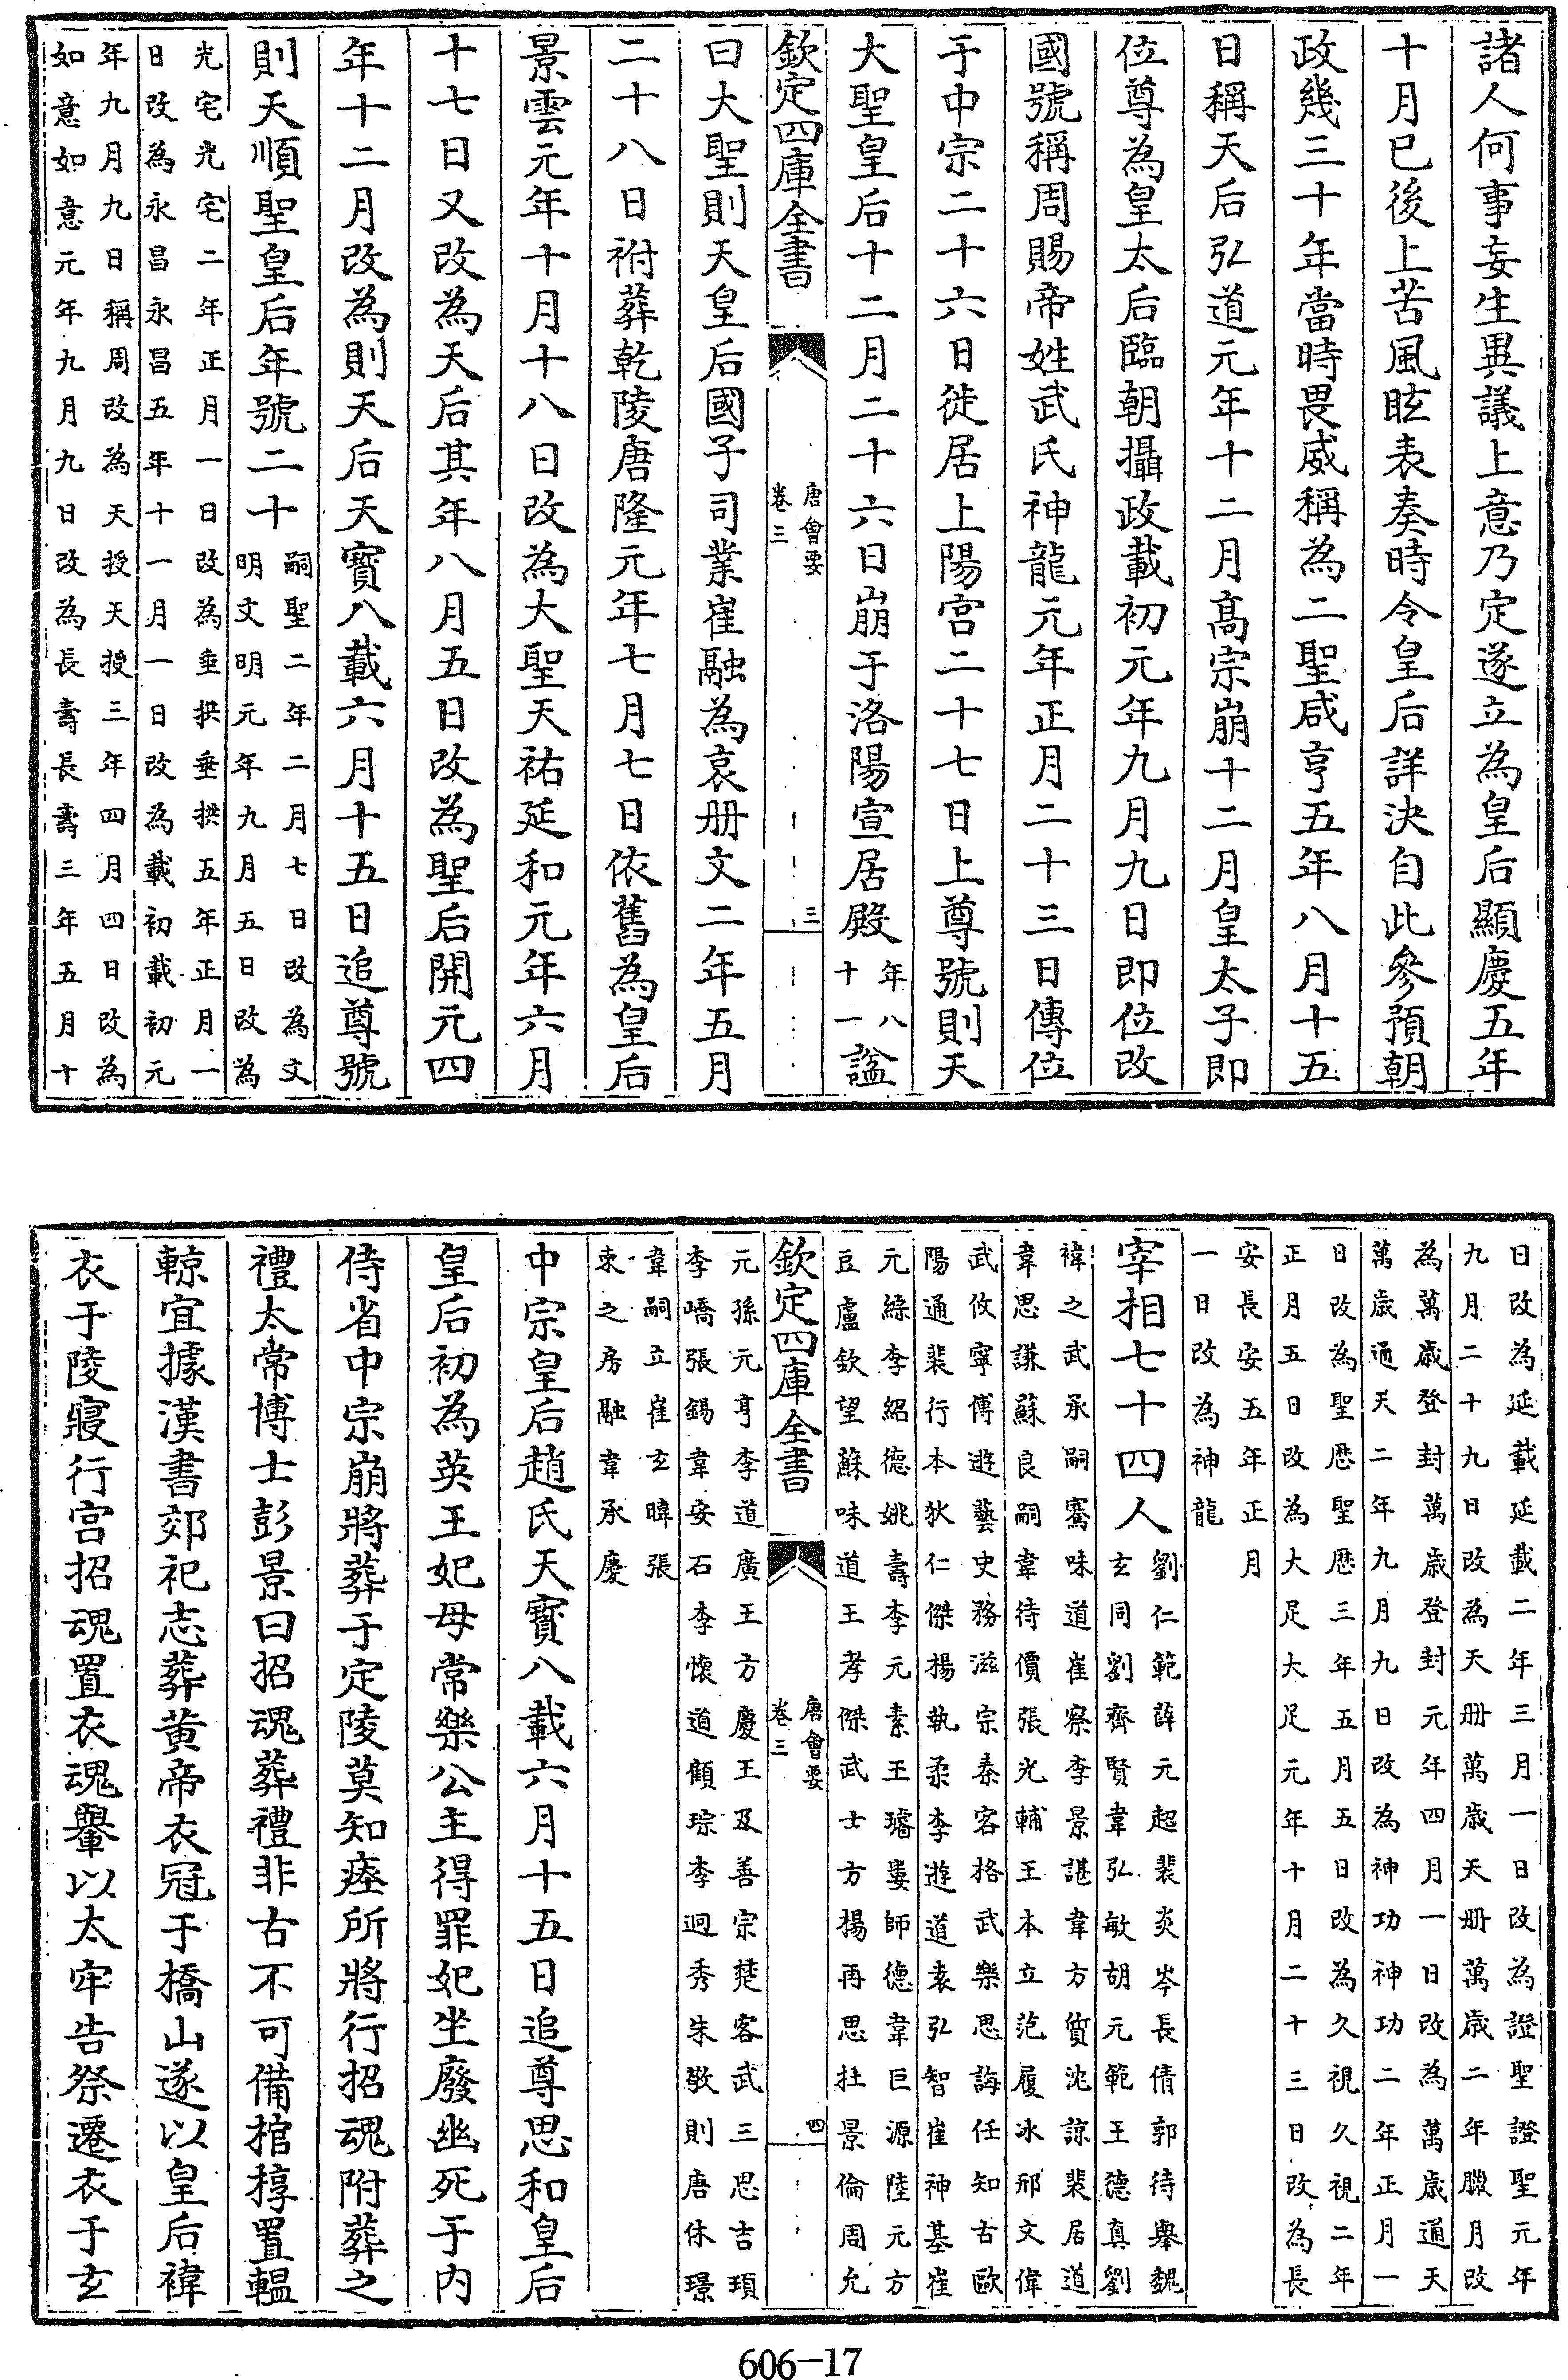 諸人何事妄生異議上意乃定遂立為皇后顯慶五年
十月已後上苦風眩表奏時令皇后詳決自此參預朝
政幾三十年當時畏威稱為二聖咸亨五年八月十五
日稱天后弘道元年十二月高宗崩十二月皇太子即
位尊為皇太后臨朝攝政載初元年九月九日即位改
國號稱周賜帝姓武氏神龍元年正月二十三日傳位
于中宗二十六日徙居上陽宫二十七日上尊號則天
大聖皇后十二月二十六日崩于洛陽宣居殿年八十一諡
欽定四庫全書
唐會要
卷三
三
曰大聖則天皇后國子司業崔融為哀册文二年五月
二十八日祔葬乾陵唐隆元年七月七日依舊為皇后
景雲元年十月十八日改為大聖天祐延和元年六月
十七日又改為天后其年八月五日改為聖后開元四
年十二月改為則天后天寶八載六月十五日追尊號
則天順聖皇后年號二十
嗣聖二年二月七日改為文
明文明元年九月五日改為
光宅光宅二年正月一日改為垂拱垂拱五年正月一
日改為永昌永昌五年十一月一日改為載初載初元
年九月九日稱周改為天授天授三年四月四日改為
如意如意元年九月九日改為長壽長壽三年五月十
日改為延載延載二年三月一日改為證聖證聖元年
九月二十九日改為天册萬歲天册萬歲二年臘月改
為萬歲登封萬歲登封元年四月一日改為萬歲通天
萬歲通天二年九月九日改為神功神功二年正月一
日改為聖厯聖厯三年五月五日改為久視久視二年
正月五日改為大足大足元年十月二十三日改為長
安長安五年正月
一日改為神龍
宰相七十四人
劉仁範薛元超裴炎岑長倩郭待舉魏
玄同劉齊賢韋弘敏胡元範王德真劉
禕之武承嗣騫味道崔察李景諶韋方質沈諒裴居道
韋思謙蘇良嗣韋待價張光輔王本立范履冰邢文偉
武攸寧傅遊藝史務滋宗秦客格武樂思誨任知古歐
陽通裴行本狄仁傑揚執柔李遊道袁弘智崔神基崔
元綜李紹德姚壽李元素王璿婁師德韋巨源陸元方
豆盧欽望蘇味道王孝傑武士方揚再思杜景倫周允
欽定四庫全書
唐會要
卷三
四
元孫元亨李道廣王方慶王及善宗楚客武三思吉頊
李嶠張錫韋安石李懷道顧琮李迥秀朱敬則唐休璟
韋嗣立崔玄暐張
柬之房融韋承慶
中宗皇后趙氏天寶八載六月十五日追尊思和皇后
皇后初為英王妃母常樂公主得罪妃坐廢幽死于内
侍省中宗崩將葬于定陵莫知瘞所將行招魂附葬之
禮太常博士彭景曰招魂葬禮非古不可備棺椁置轀
輬宜據漢書郊祀志葬黄帝衣冠于橋山遂以皇后褘
衣于陵寢行宫招魂置衣魂轝以太牢告祭遷衣于玄
606-17